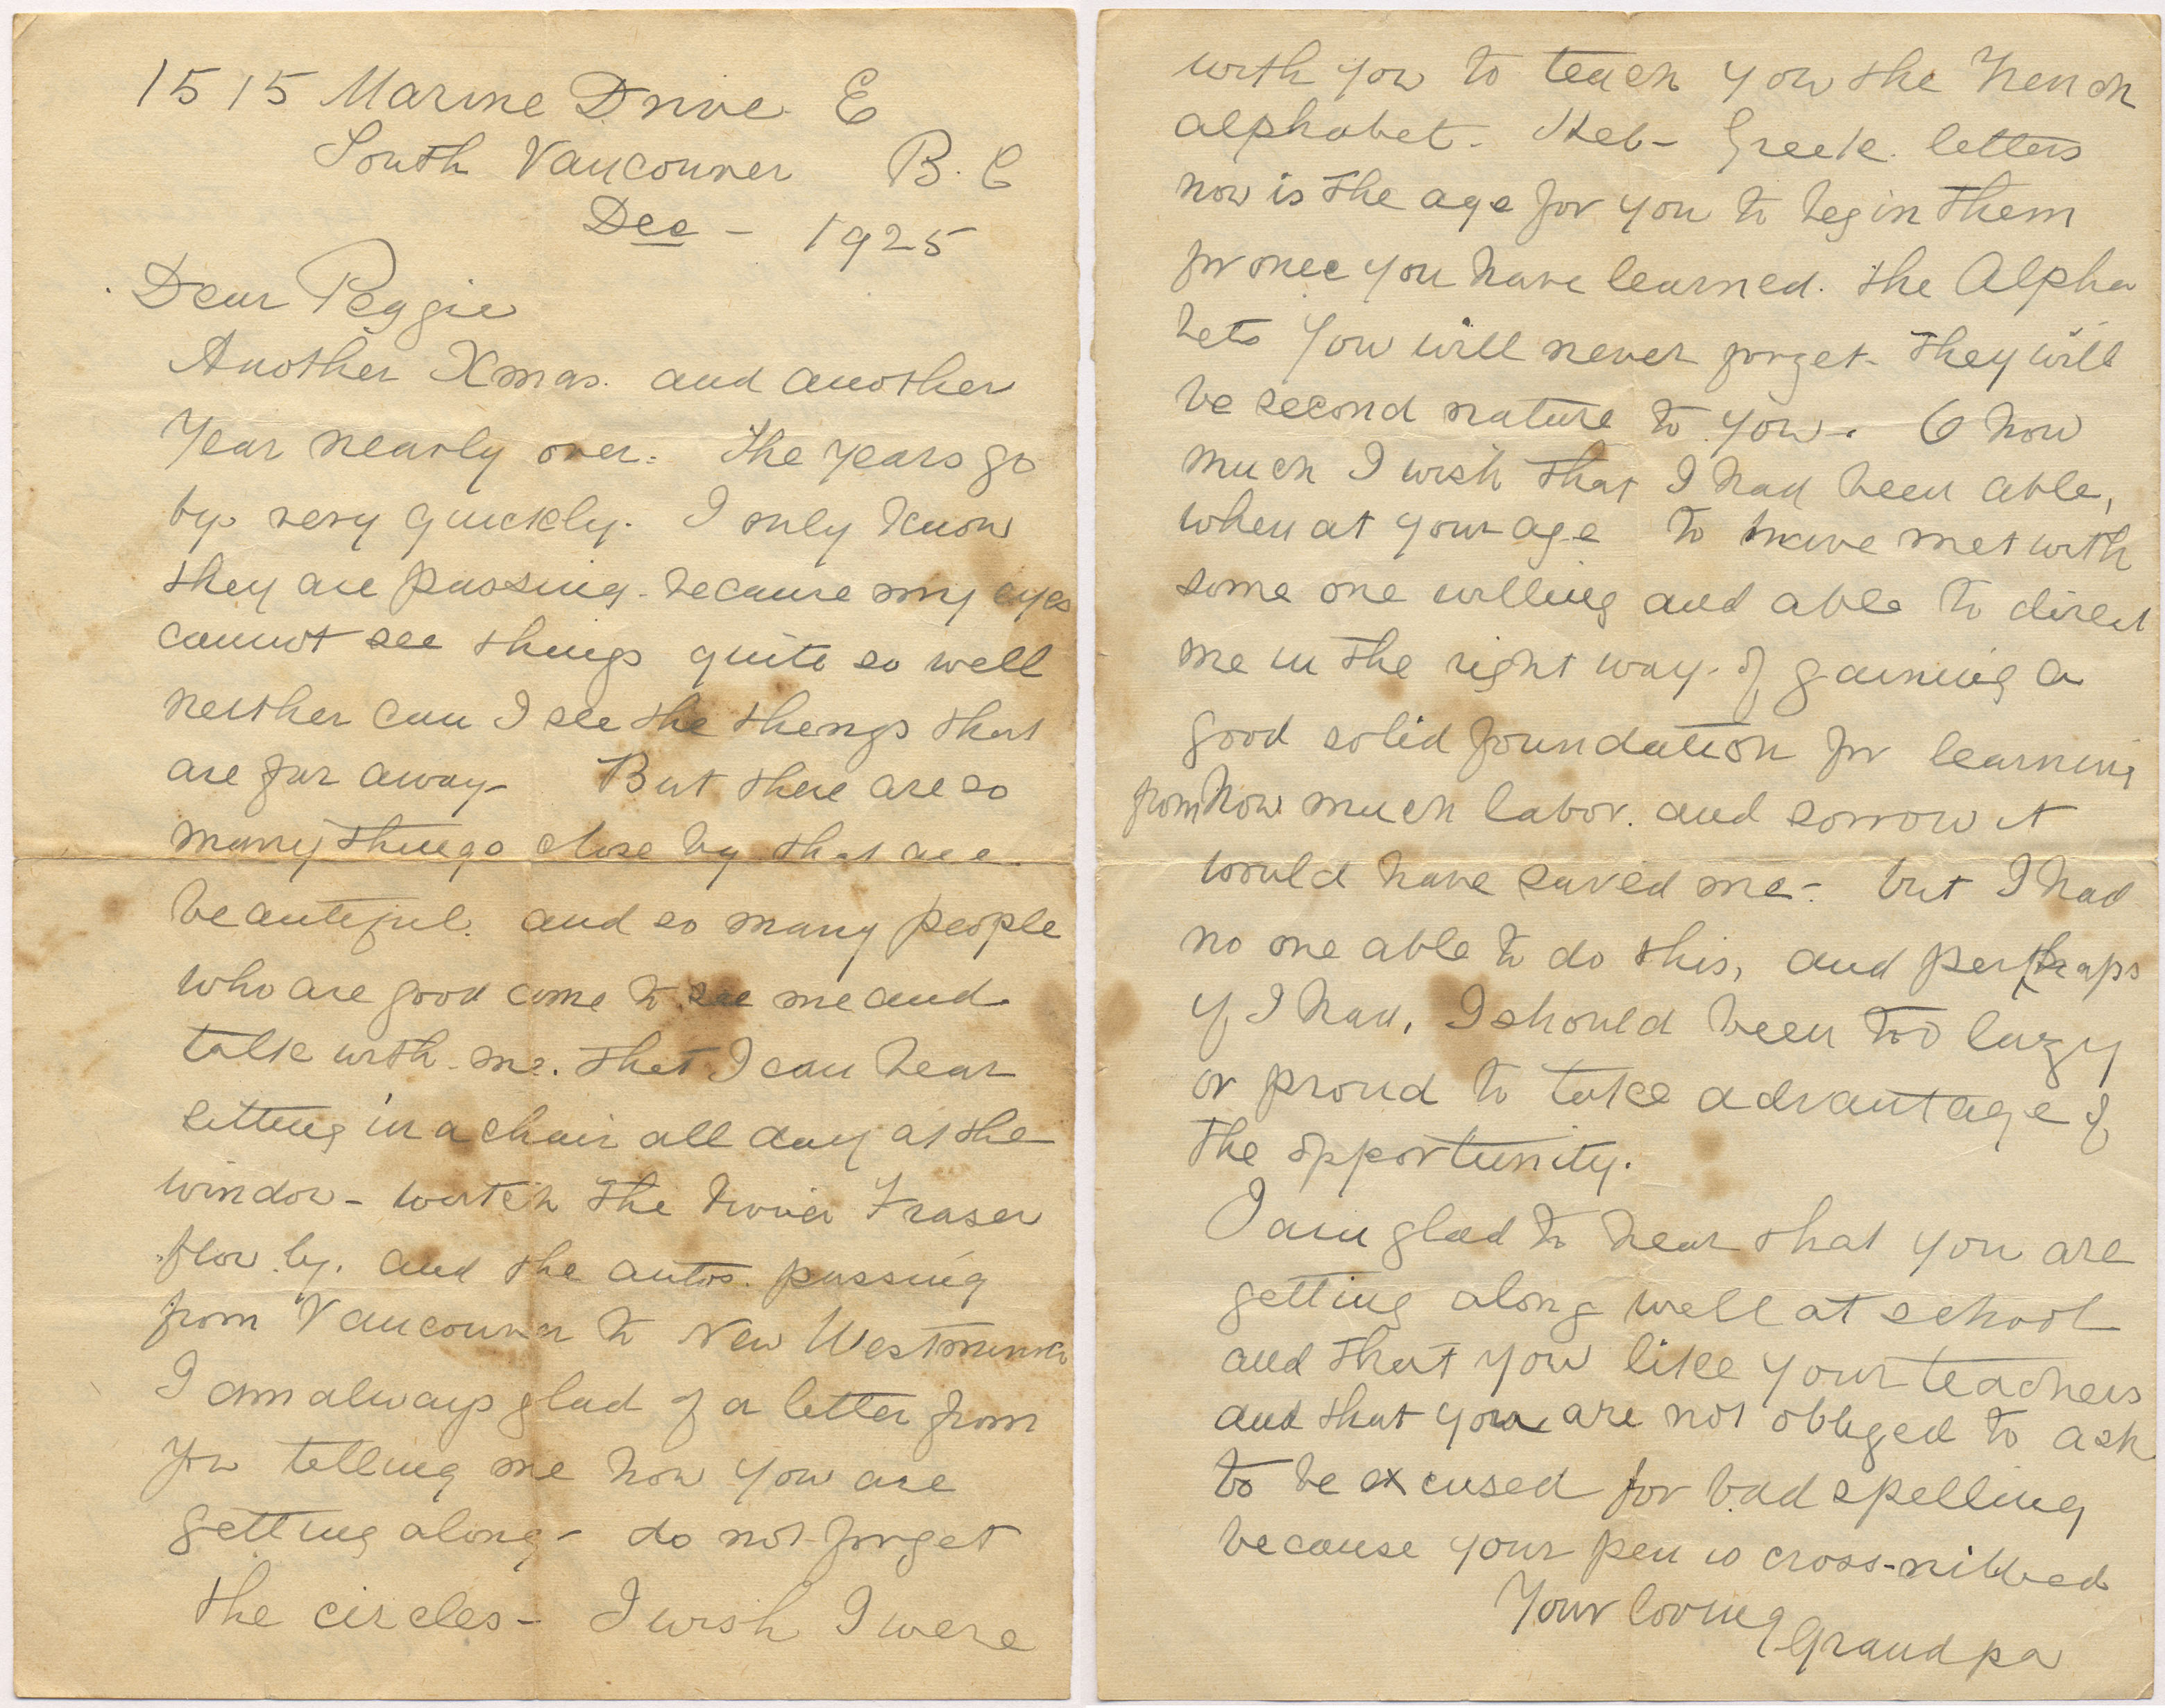 1515 Marine Drive E
South Vancouver B.C
Dec - 1925
Dear Peggie
Another Xmas. and another
Year nearly over. The years go
by very quickly. I only know
they are passing - because my eyes
cannot see things quite so well
neither can I see the things that
are far away - But there are so
many things close by that are
beautiful. and so many people
who are good come to see me and
talk with me. that I can hear
sitting in a chair all day at the
window - watch the river Fraser
flow by. and the autos. passing
from Vancouver to New Westminster
I am always glad of a letter from
you telling me how you are
getting along - do not forget
the circles - I wish I were
with you to teach you the French
alphabet - Heb - Greek letters
now is the age for you to begin them
for once you have learned. the Alpha
bets You will never forget - they will
be second nature to you. O how
much I wish that I had been able,
when at your age to have met with
some one willing and able to direct
me in the right way. of gaining a
good solid foundation for learning
from how much labor. and sorrow it
would have saved me - but I had
no one able to do this, and perhaps
if I had, I should been too lazy
or proud to take advantage of
the opportunity.
I am glad to hear that you are
getting along well at school
and that you like your teachers
and that you are not obliged to ask
to be excused for bad spelling
because your pen is cross-nibbed
Your loving Grandpa